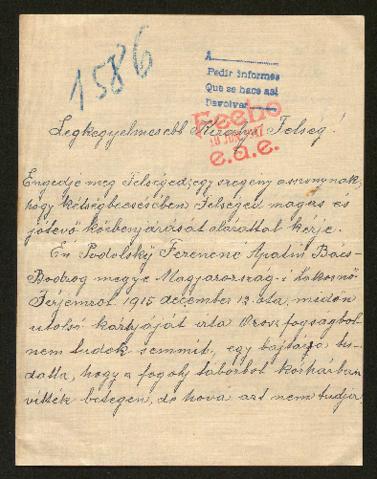 1586
A
Pedir informes
Que se hace así
Devolver
Fecho
e.a.e.
Legkegyelmesebb Királyi Felség!
Engedje meg Felséged, egy szegény asszonynak,
hogy kétségbeesésében Felséged magas és
jótevő közbenyárását alázattal kérje.
Én Podolsky Ferencné Apatin Bács-
Bodrog megye Magyarország-i lakosnő
Férjemről 1915 december 12 óta, midőn
utolsó kártyáját írta Orosz fogságból
nem tudok semmit, egy bajtársa tu-
datta, hogy a fogoly táborból kórházban
vitték betegen, de hova azt nem tudja